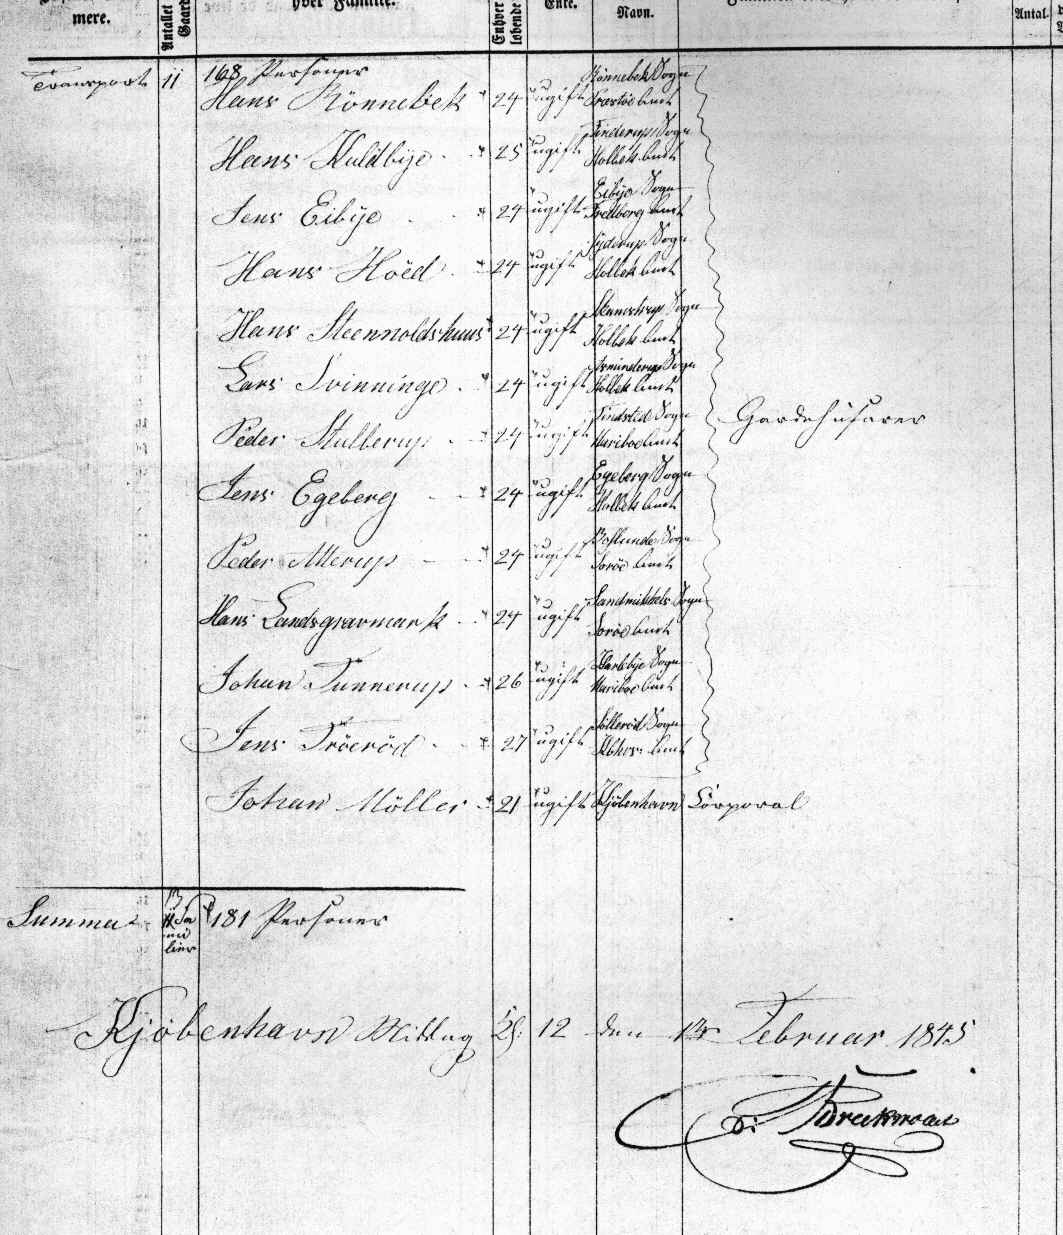 mere.
Antallet
Gaard
hver Familie.
Enhver
løbende
Enke.
Navn.
Antal.
Transport 11 168 Personer
Hans Rönnebek 24 ugift Rönnebek Sogn
Præstöe Amt
Hans Kuldbÿe 25 ugift Finderup Sogn
Holbek Amt
Jens Eibÿe 24 ugift Eibÿe Sogn
Amt
Hans Höed 24 ugift Jÿderup Sogn
Holbek Amt
Hans Steennoldshuus 24 ugift Sogn
Holbek Amt
Lars Svinninge 24 ugift Asminderup Sogn
Holbek Amt
Peder Stullerup 24 ugift Tindsted Sogn
Mariboe Amt
Gardehusarer
Jens Egeberg 24 ugift Egeberg Sogn
Holbek Amt
Peder Atterup 24 ugift Boslunde Sogn
Soröe Amt
Hans Landsgravmark 24 ugift Sandmikkels Sogn
Soröe Amt
Johan Tunnerup 26 ugift Sogn
Mariboe Amt
Jens Tröeröd 27 ugift Sölleröd Sogn
Kbhvs Amt
Johan Möller 21 ugift Kjöbenhavn Corporal
Summa 13 Fa
mi
lier
181 Personer
Kjöbenhavn Middag Kl: 12 den 1ste Februar 1845